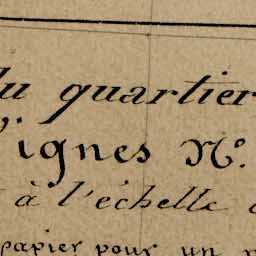 du quartier
ignes N°.
à l'échelle
papier pour un